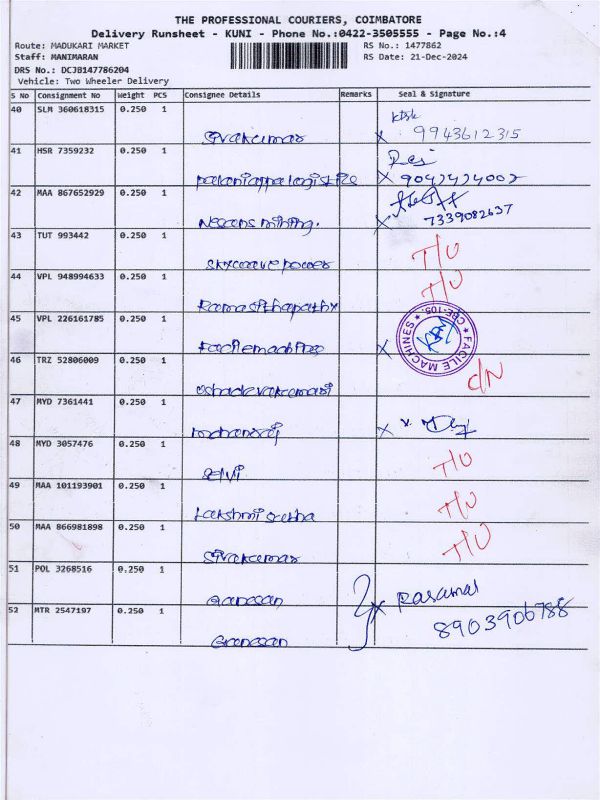 THE PROFESSIONAL COURIERS, COIMBATORE
Delivery Runsheet - KUNI - Phone No.:0422-3505555 - Page No.:4
Route: MADUKARI MARKET RS No.: 1477862
Staff: MANIMARAN RS Date: 21-Dec-2024
DRS No.: DCJB147786204
Vehicle: Two Wheeler Delivery
S No Consignment No Weight PCS Consignee Details Remarks Seal & Signature
40 SLM 360618315 0.250 1
Sivakumar x 9943612315
41 HSR 7359232 0.250 1
palaniappa logistics x 9042424002
42 MAA 867652929 0.250 1
mining. x 7339082637
43 TUT 993442 0.250 1
skywave power T/O
44 VPL 948994633 0.250 1 T/O
45 VPL 226161785 0.250 1
x FACILE MACHINES * CBE-105. *
46 TRZ 52806009 0.250 1
ushadevakumari C/N
47 MYD 7361441 0.250 1
mohanraj x
48 MYD 3057476 0.250 1
selvi T/O
49 MAA 101193901 0.250 1
Lakshmi sutha T/O
50 MAA 866981898 0.250 1
Sivakumar T/O
51 POL 3268516 0.250 1
Ganesan x Rasamal
52 MTR 2547197 0.250 1 8903906788
Ganesan